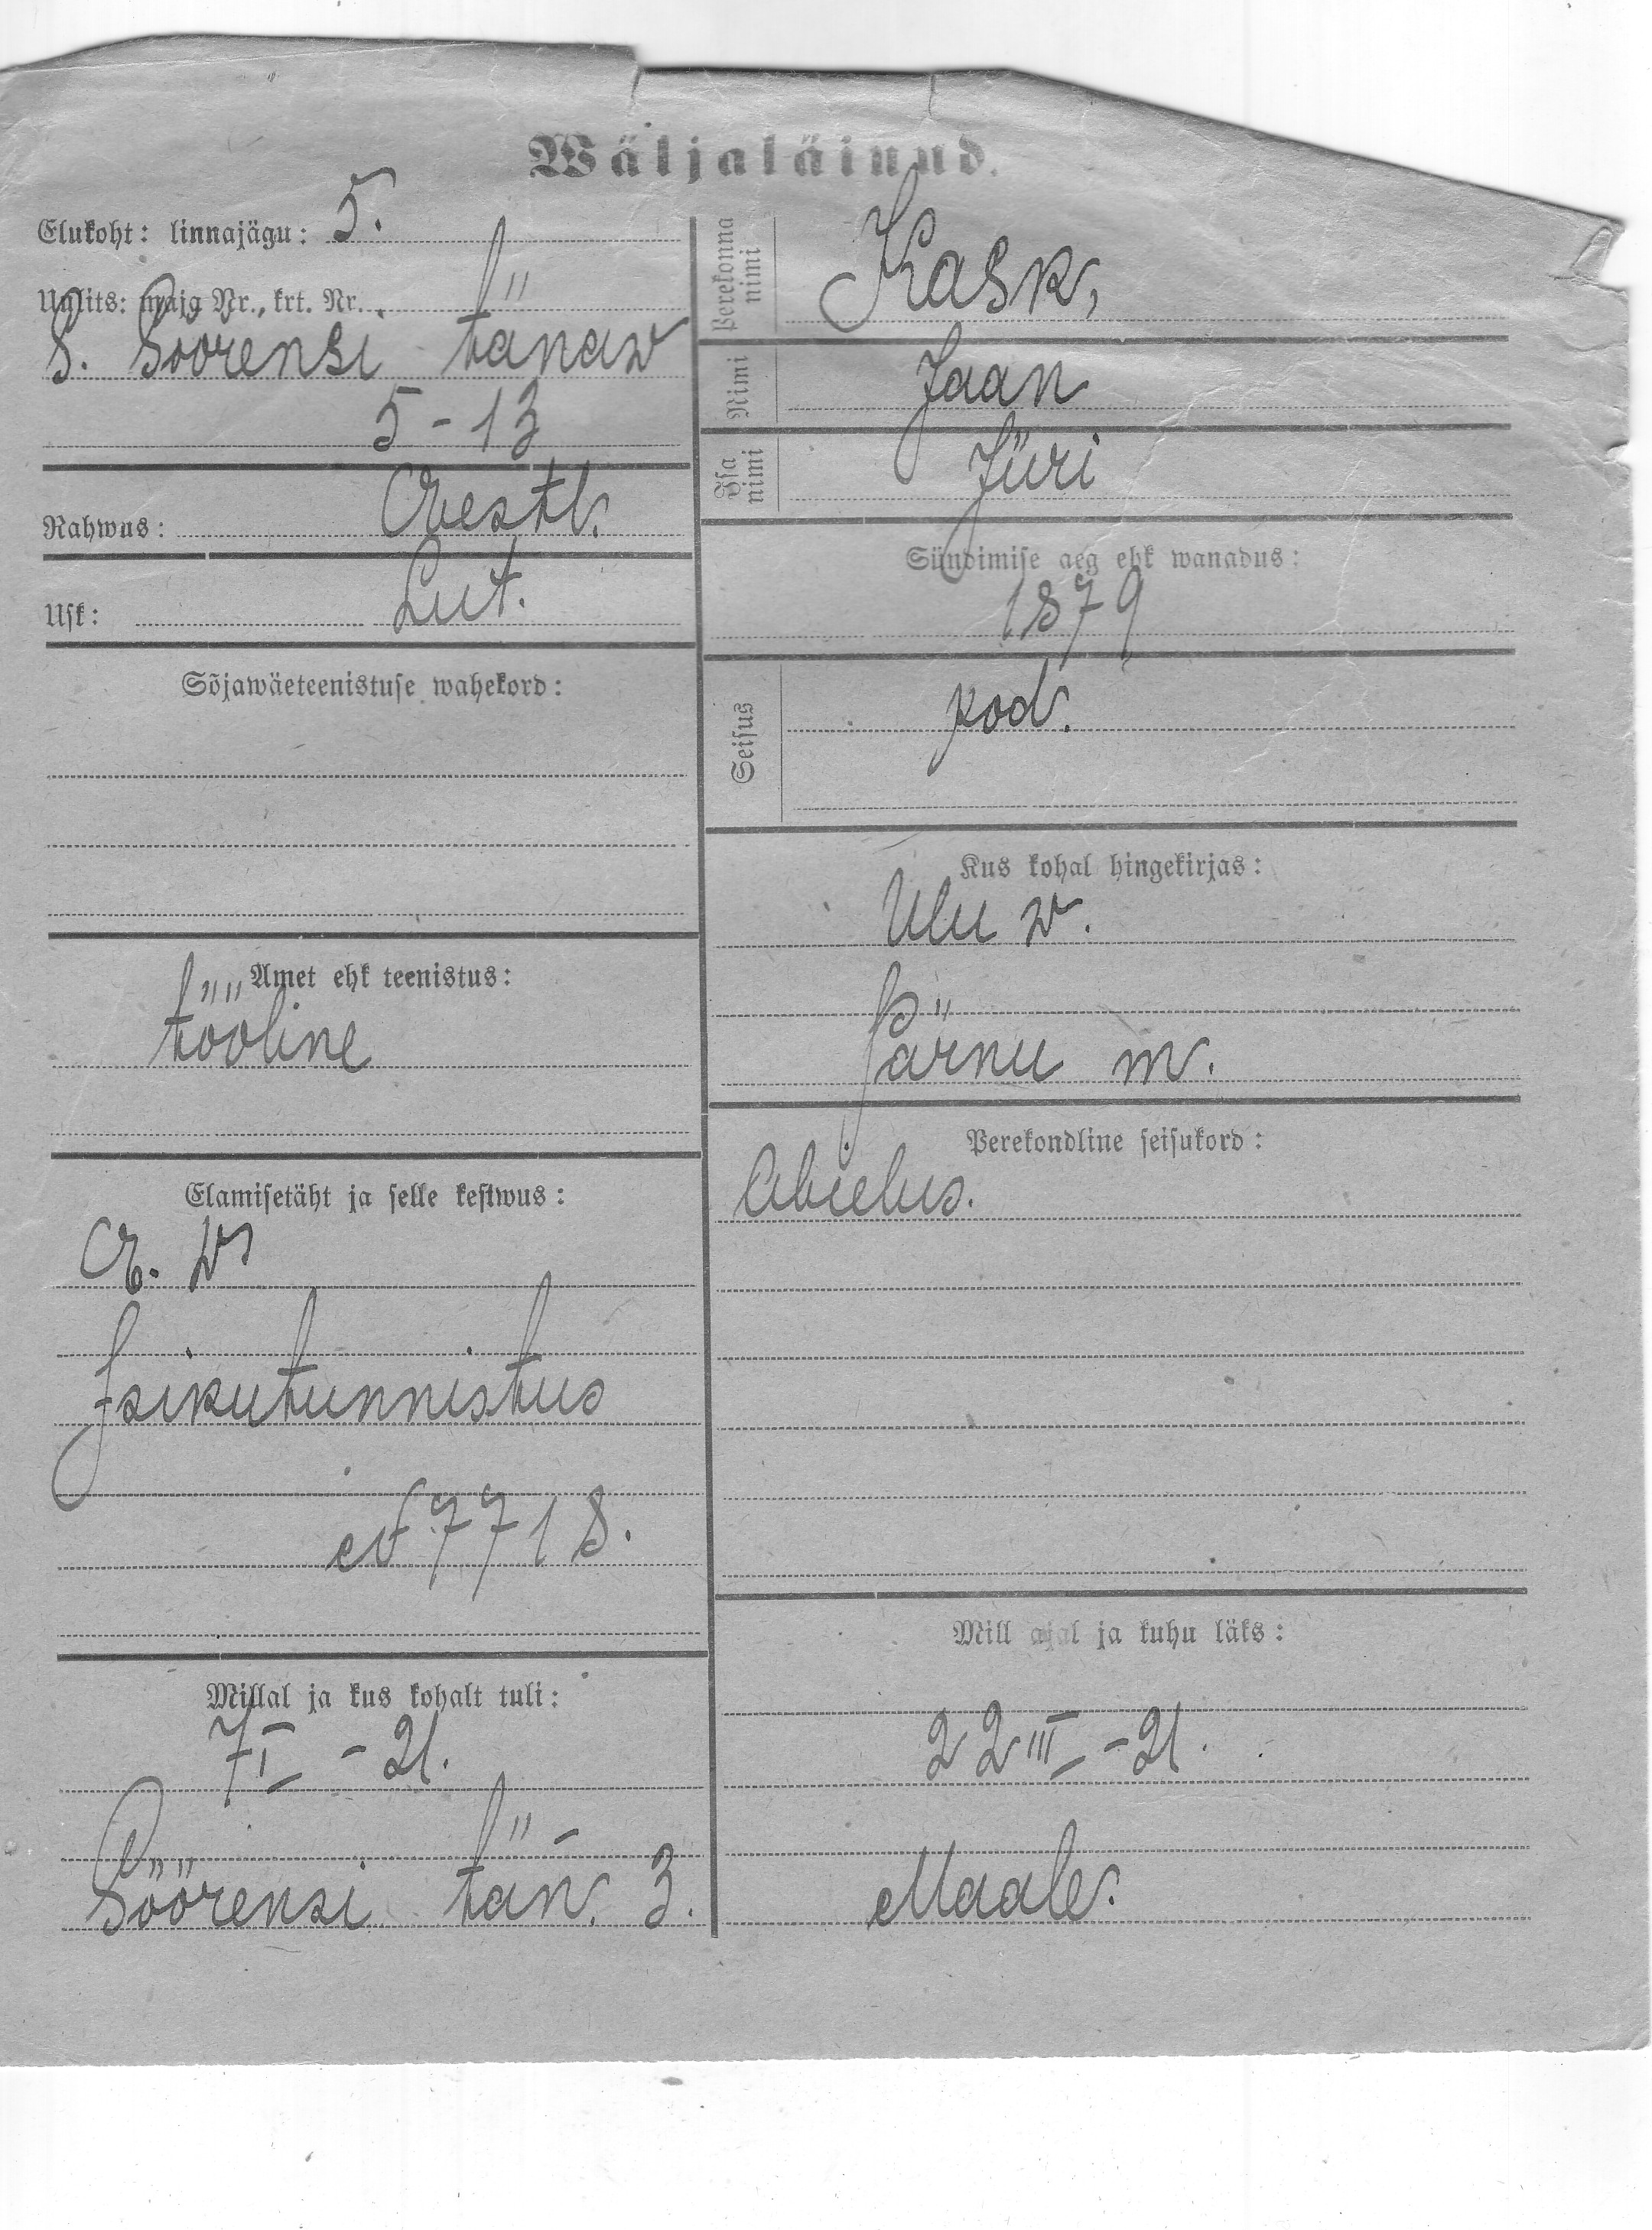 Wäljaläinud.
Elukoht: linnajägu: 5.
Uulits: maja Nr., krt. Nr.
S. Söörensi tänaw
5 - 13
Rahwus: Eestl.
Usk: Lut.
Sõjawäeteenistuse wahekord:
Amet ehk teenistus:
tööline
Elamisetäht ja selle kestwus:
E. W
Isikutunnistus
№ 7718.
Millal ja kus kohalt tuli:
7 I - 21.
Söörensi tän. 3.
Perekonna nimi
Kask,
Nimi
Jaan
Isa nimi
Jüri
Sündimise aeg ehk wanadus:
1879
Seisus
kod.
Kus kohal hingekirjas:
Ulu w.
Pärnu m.
Perekondline seisukord:
Abielus.
Mill ajal ja kuhu läks:
22 III - 21.
Maale.